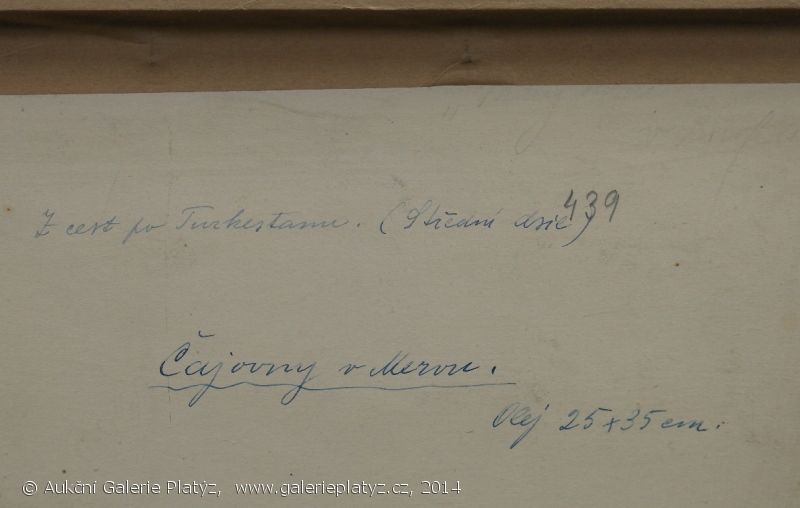 Z cest po Turkestanu. (Střední Asie)
439
Čajovny v Mervu.
Olej 25x35 cm.
© Aukční Galerie Platýz, www.galerieplatyz.cz, 2014